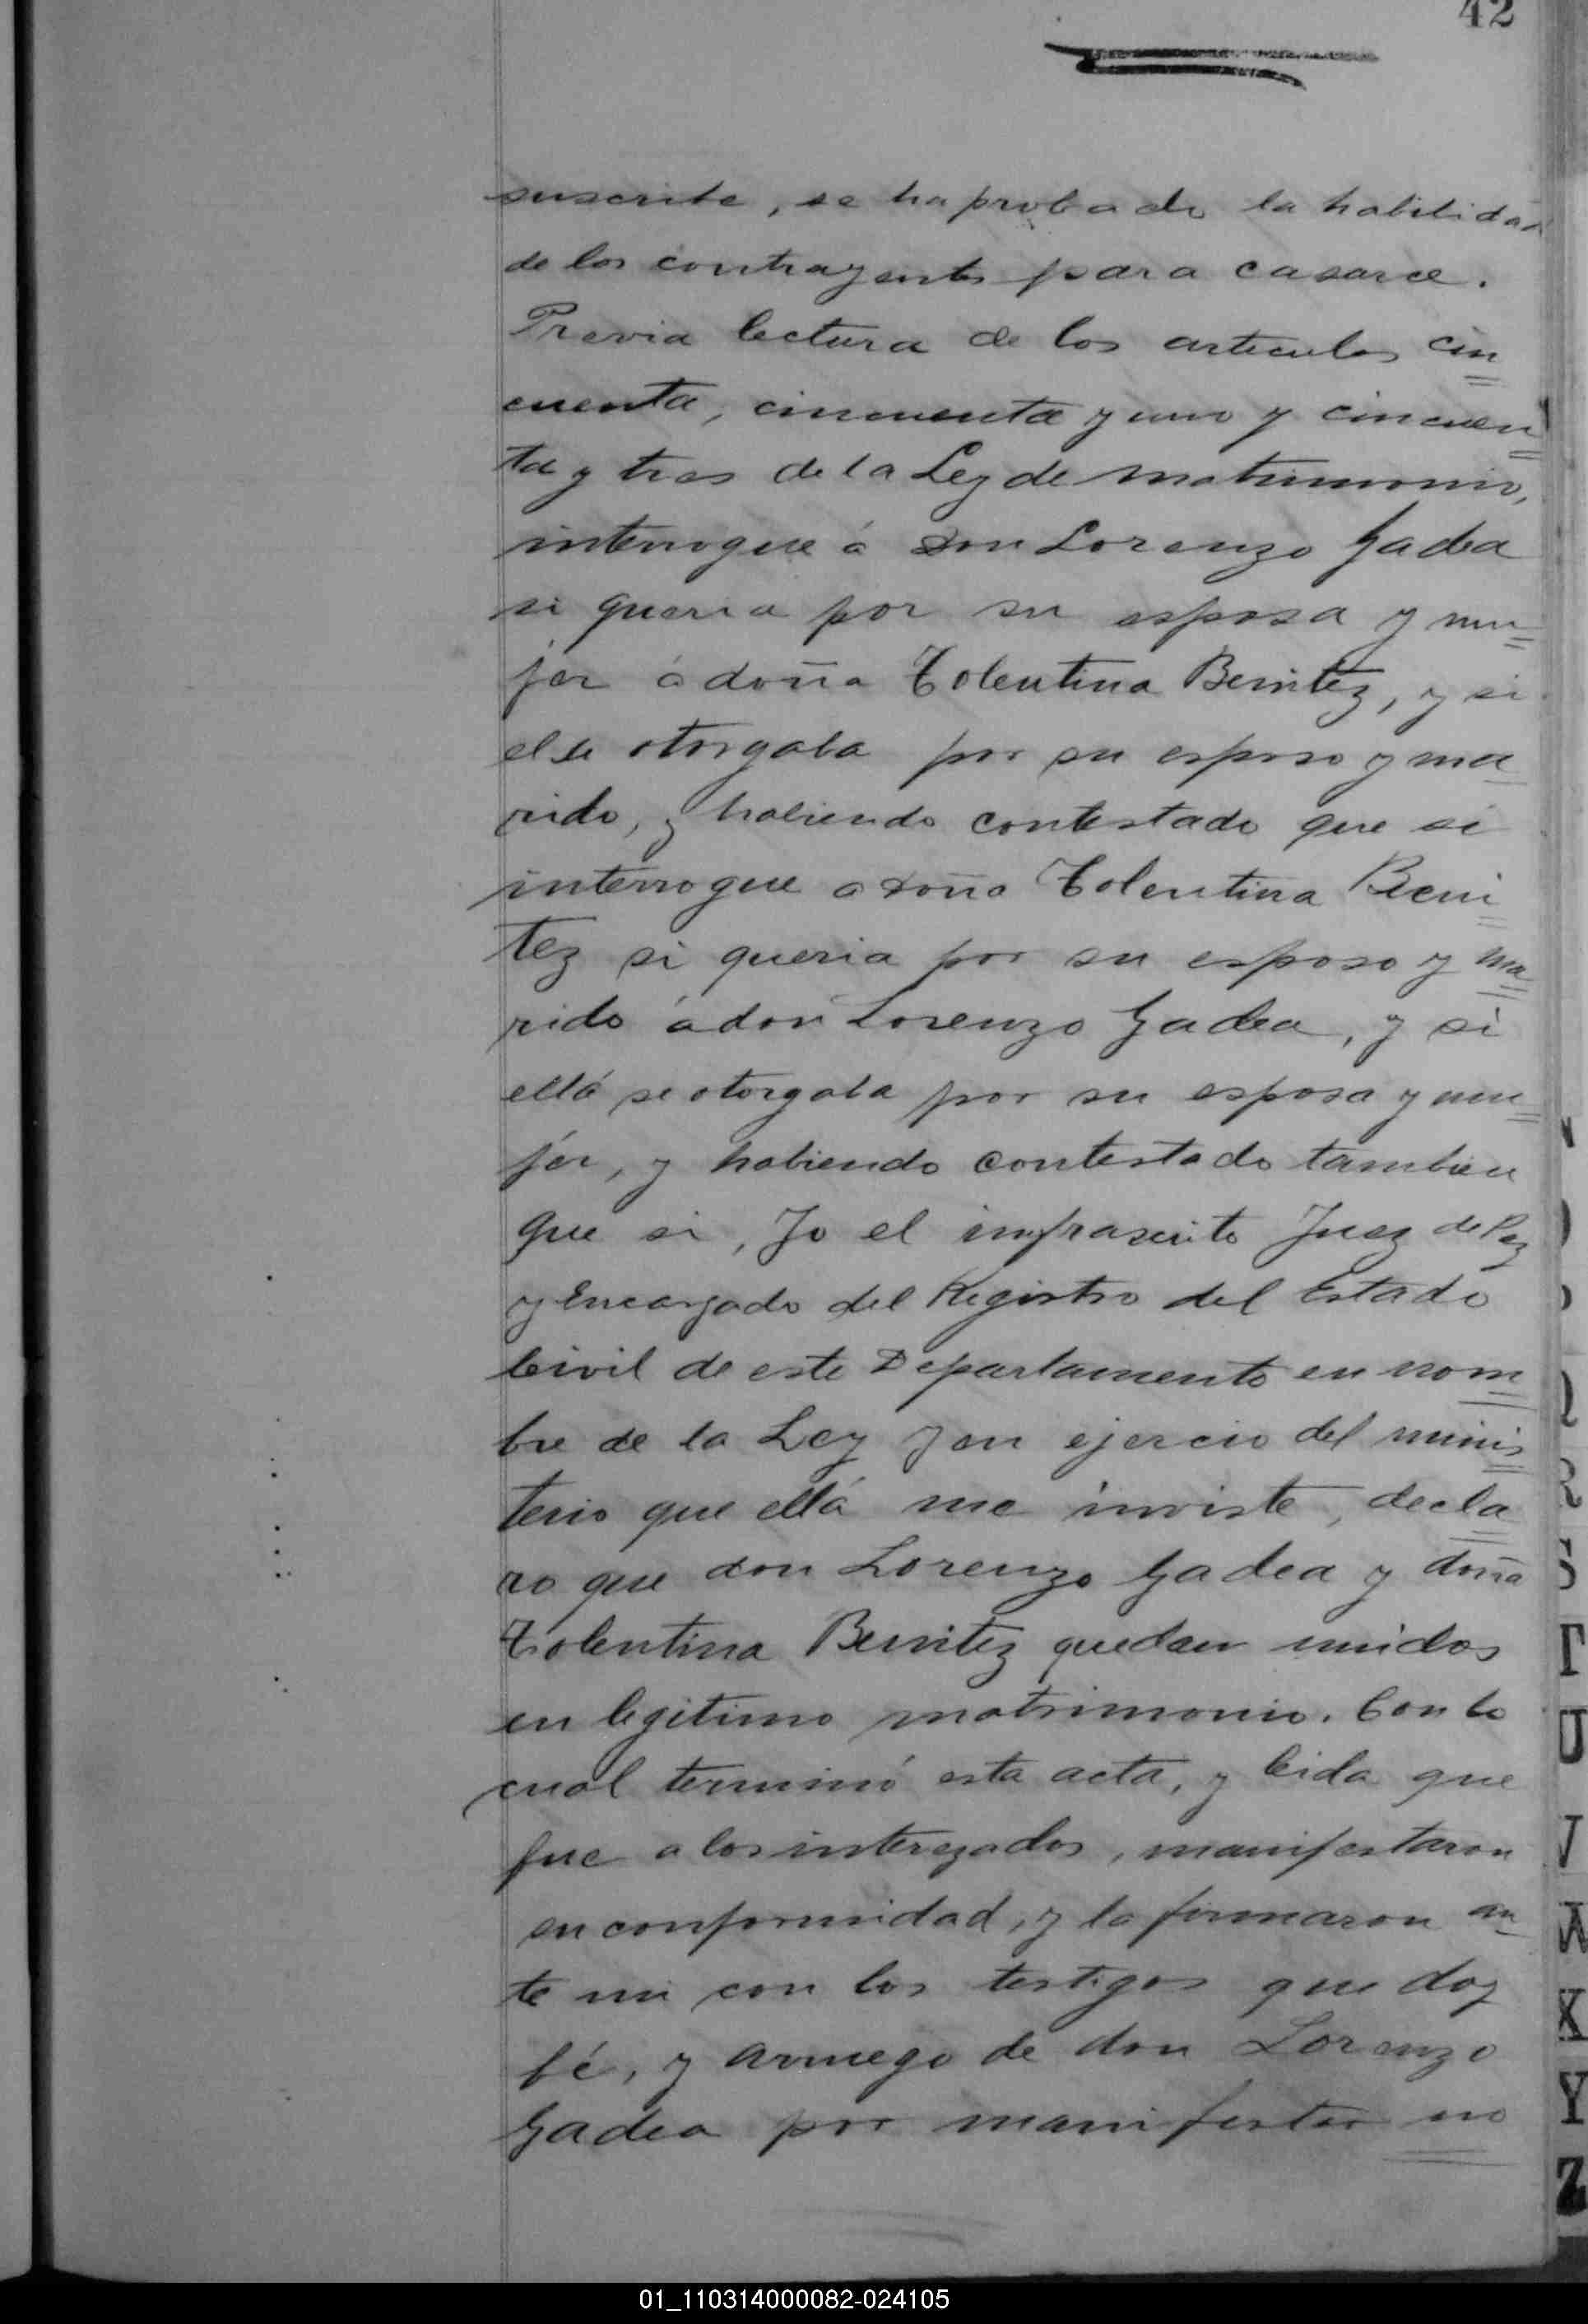 42
suscribe, se ha probado la habilidad
de los contrayentes para casarce.
Previa lectura de los articulos cin
cuenta, cincuenta y uno y cincuen
ta y tres de la Ley de matrimonio,
interrogue á don Lorenzo Gadea
si queria por su esposa y mu
jer á doña Tolentina Benitez, y si
el se otorgaba por su esposo y ma
rido, y habiendo contestado que si
interrogue a doña Tolentina Beni
tez si queria por su esposo y ma
rido á don Lorenzo Gadea, y si
ellá se otorgaba por su esposa y mu
jer, y habiendo contestado tambien
que si, Yo el infrascrito Juez de Paz
y Encargado del Registro del Estado
Civil de este Departamento en nom
bre de la Ley y en ejercio del minis
terio que ellá me inviste, decla
ro que don Lorenzo Gadea y doña
Tolentina Benitez quedan unidos
en legitimo matrimonio. Con lo
cual terminó esta acta, y leida que
fue a los interezados, manifestaron
su conformidad, y la firmaron an
te mi con los testigos que doy
fé, y arruego de don Lorenzo
Gadea por manifestar no
N
O
P
Q
R
S
T
U
V
W
X
Y
Z
01_110314000082-024105